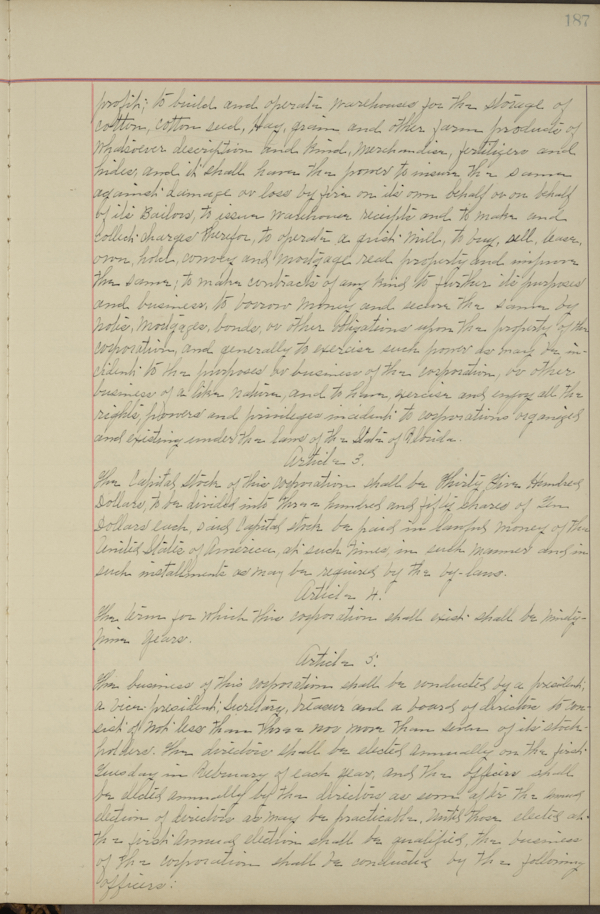 187
profit; to build and operate warehouses for the storage of
cotton, cotton seed, Hay, grain and other farm products of
whatsoever description and kind, merchandise, fertilizers and
hides, and it shall have the power to insure the same
against damage or loss by fire on its own behalf or on behalf
of its Bailors, to issue warehouse receipts and to make and
collect charges therefor, to operate a grist mill, to buy, sell, lease,
own, hold, convey and mortgage real property and improve
the same; to make contracts of any kind to further its purposes
and business, to borrow money and secure the same by
notes, mortgages, bonds, or other obligations upon the property of the
corporation, and generally to exercise such power as may be in-
cident to the purposes or business of the corporation, or other
business of a like nature, and to have, exercise and enjoy all the
rights, powers and privileges incident to corporations organized
and existing under the laws of the State of Florida.
Article 3.
The Capital Stock of this corporation shall be Thirty Five Hundred
Dollars, to be divided into three hundred and fifty shares of Ten
Dollars each, said Capital stock be paid in lawful money of the
United States of America, at such times, in such manner and in
such installments as may be required by the by-laws.
Article 4.
The term for which this corporation shall exist shall be ninety-
nine years.
Article 5.
The business of this corporation shall be conducted by a president,
a vice president, secretary, treasurer and a board of directors to con-
sist of not less than three nor more than seven of its stock-
holders. The directors shall be elected annually on the first
Tuesday in February of each year, and the officers shall
be elected annually by the directors as soon after the annual
election of directors as may be practicable. Until those elected at
the first annual election shall be qualified, the business
of the corporation shall be conducted by the following
officers: